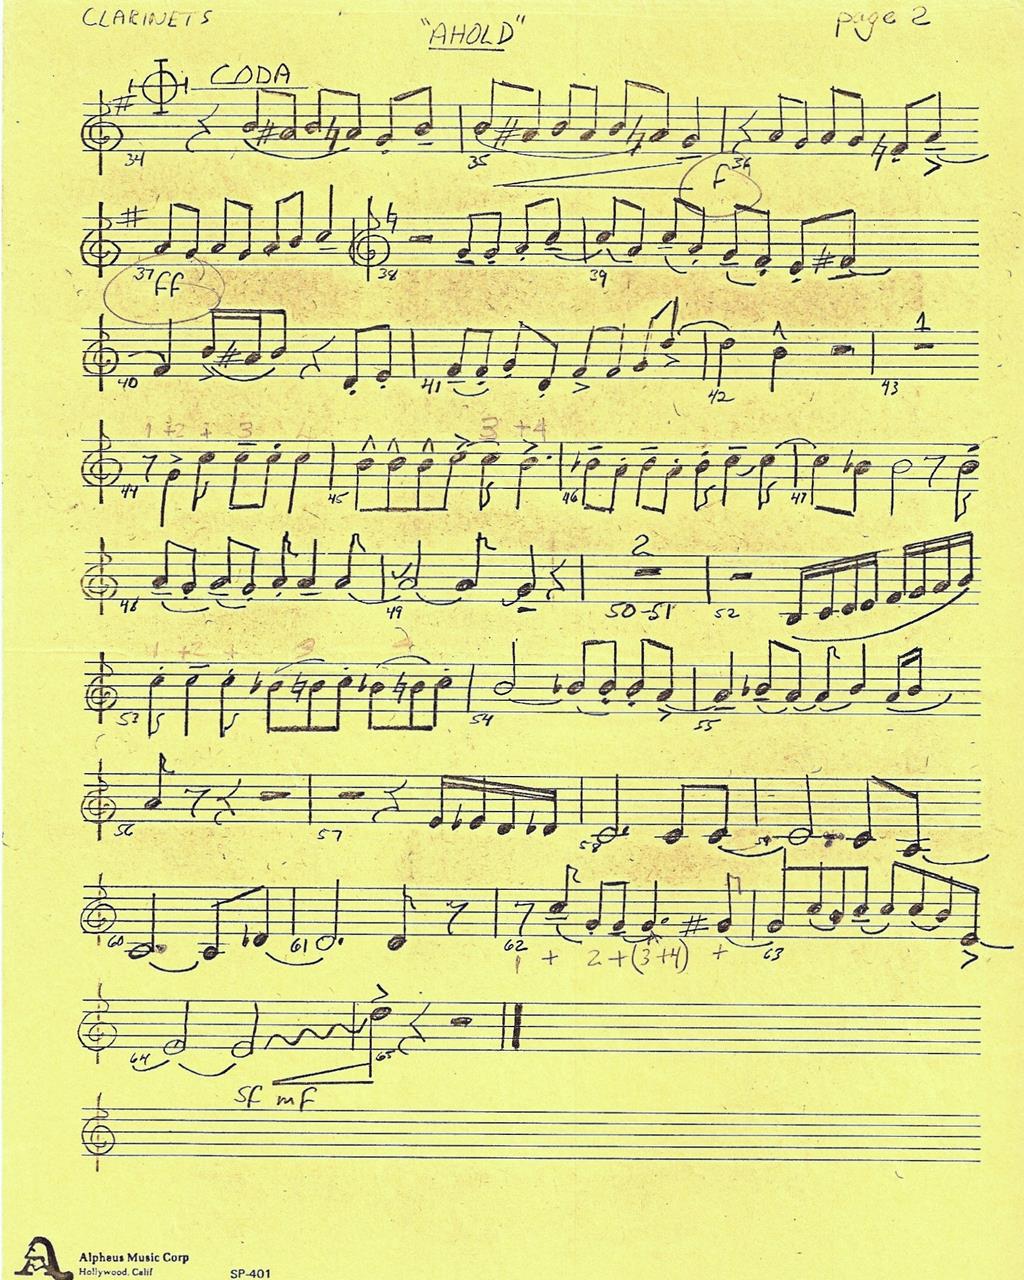 CLARINETS
"AHOLD"
page 2
CODA
34 35 36
f
37 38 39
ff
40 41 42 43
1
1 +2 + 3 4 3 +4
44 45 46 47
2
48 49 50-51 52
1 +2 + 3 4
53 54 55
56 57 58 59
60 61 62 63
1 + 2 + (3+4) +
64 65
sf mf
Alpheus Music Corp
Hollywood, Calif SP-401